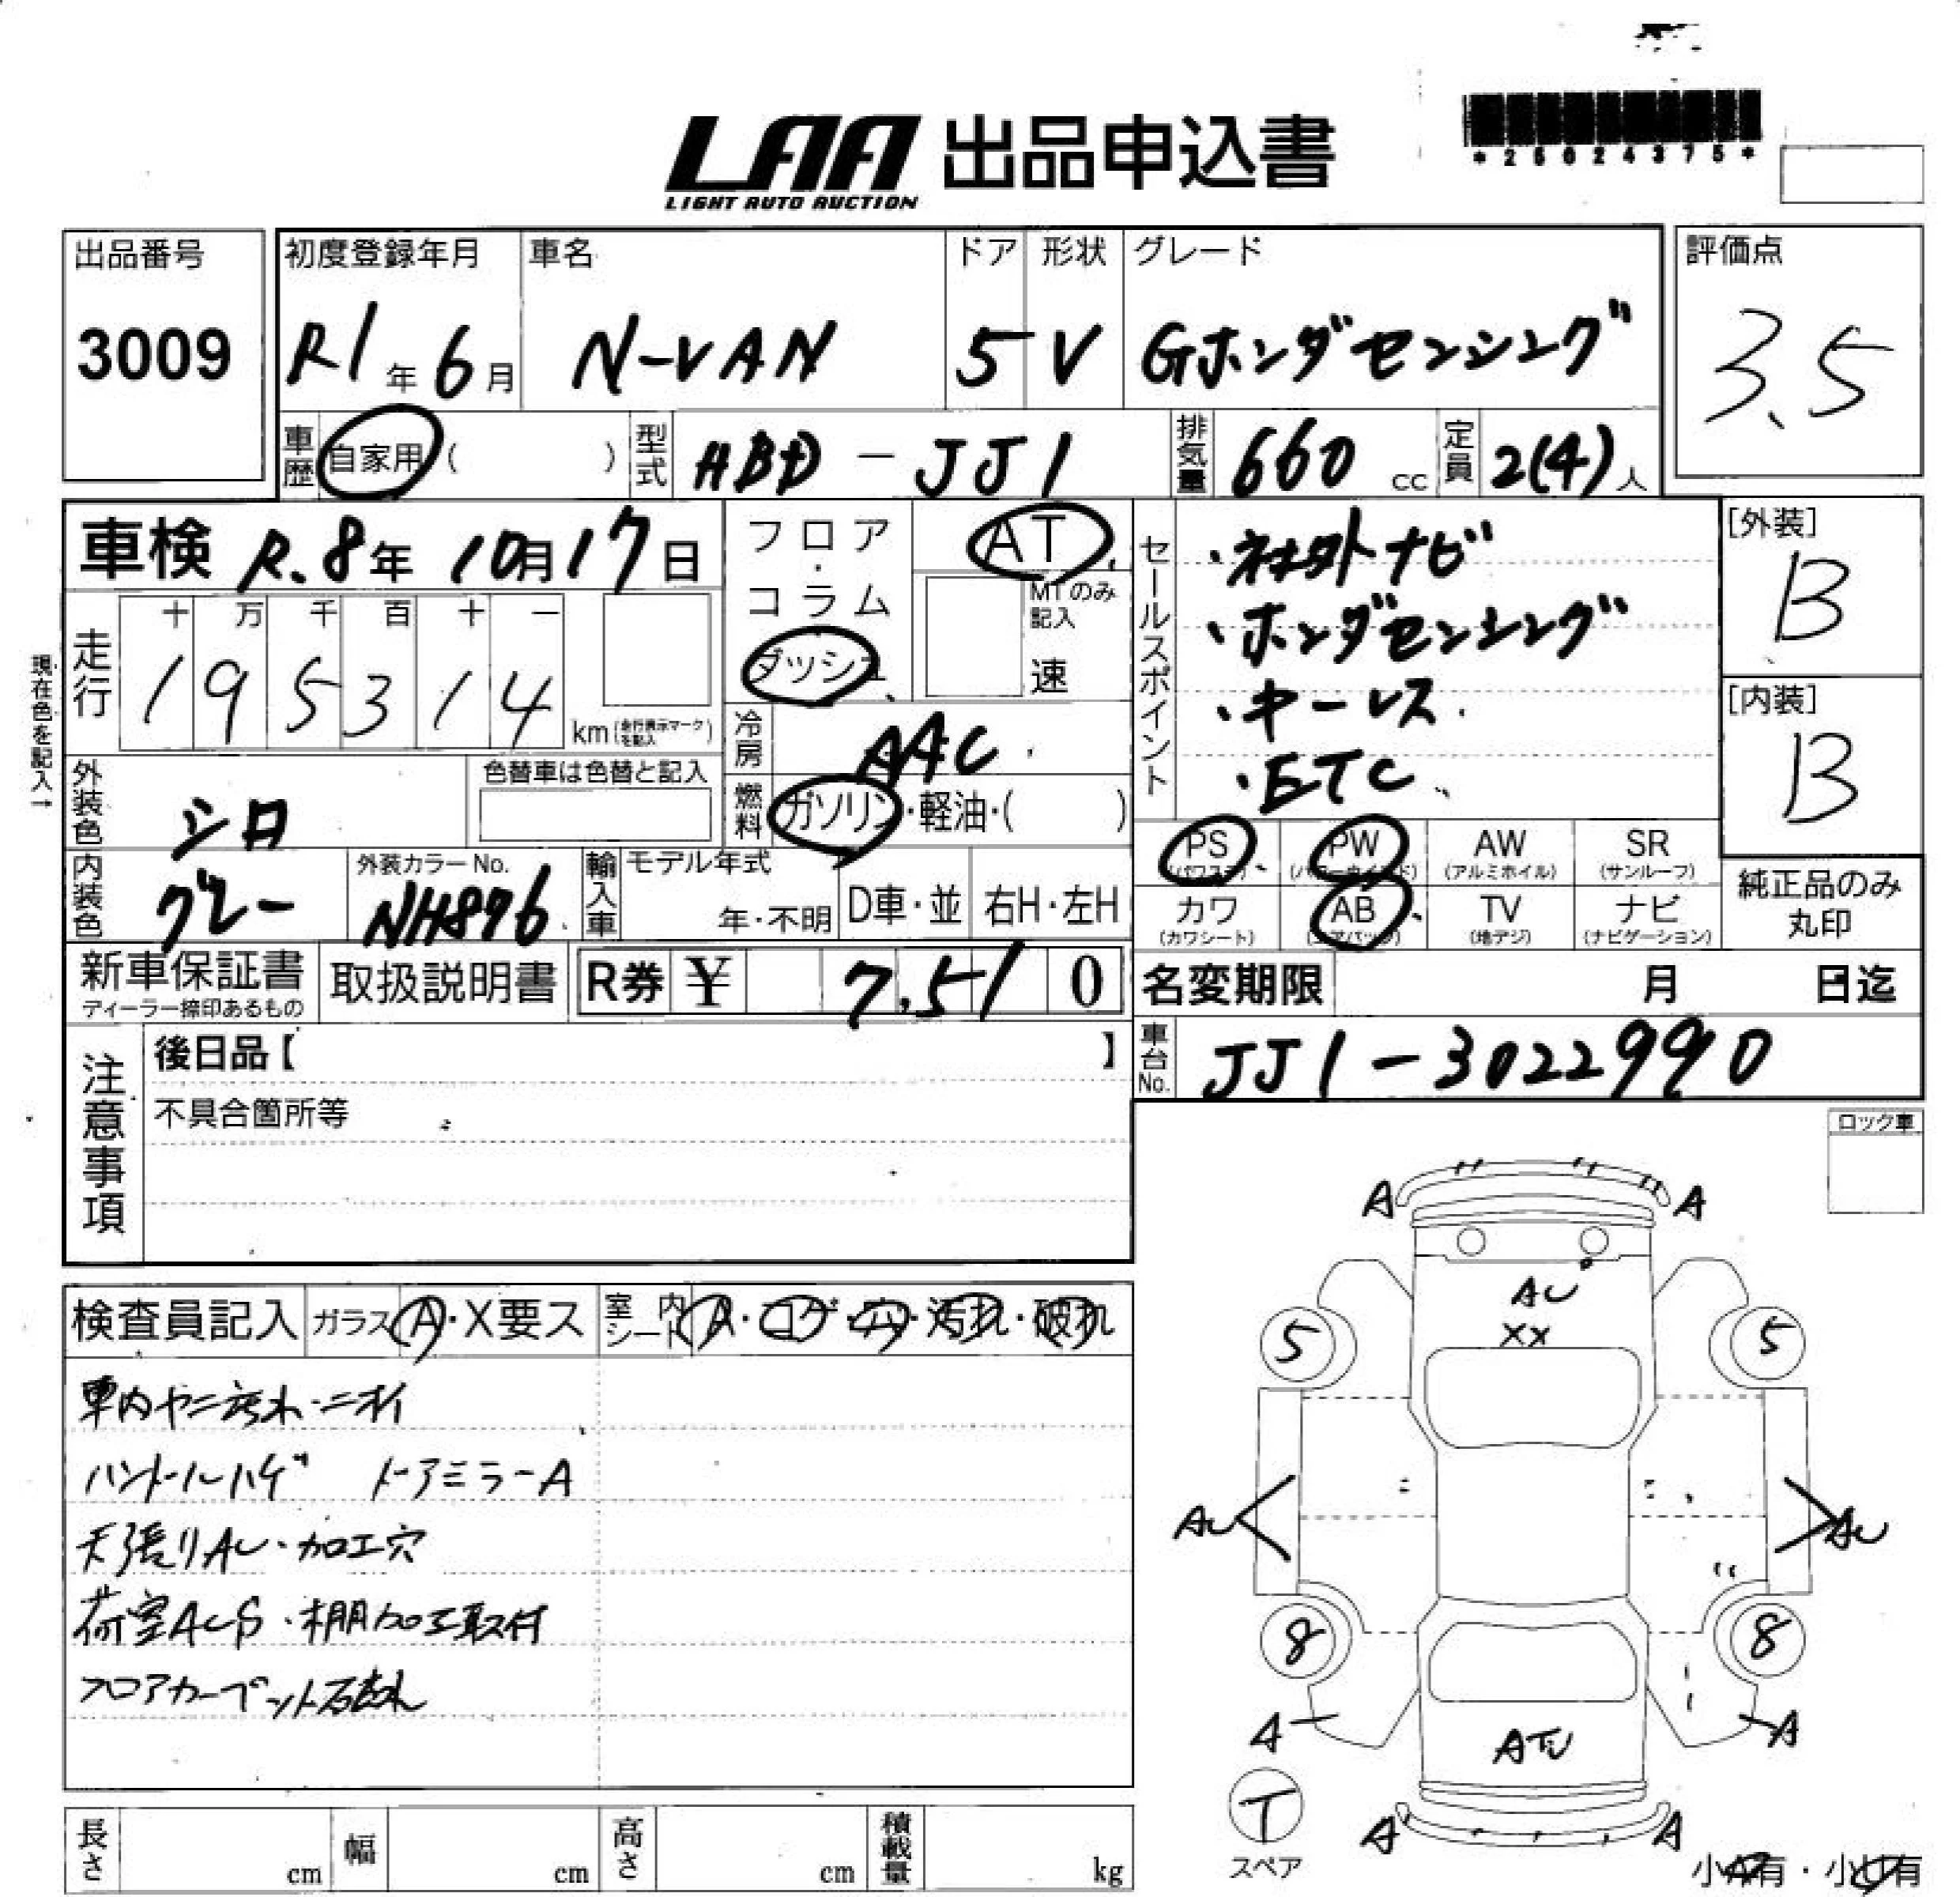 *25024375*
LAA 出品申込書
LIGHT AUTO AUCTION
出品番号
3009
初度登録年月 車名 ドア 形状 グレード
R1年6月 N-VAN 5 V Gホンダセンシング
評価点
3.5
車歴 自家用( ) 型式 HBD-JJ1 排気量 660cc 定員 2(4)人
車検 R.8年10月17日
フロア・コラム
ダッシュ
AT
MTのみ記入
速
現在色を記入→
走行 十 万 千 百 十 一
195314 km (走行表示マークを記入)
冷房 AAC
燃料 ガソリン・軽油・( )
外装色 シロ
色替車は色替と記入
内装色 グレー
外装カラーNo. NH876
輸入車 モデル年式
年・不明 D車・並 右H・左H
セールスポイント
・社外ナビ
・ホンダセンシング
・キーレス
・ETC
[外装]
B
[内装]
B
PS (パワステ) PW (パワーウインド) AW (アルミホイル) SR (サンルーフ)
カワ (カワシート) AB (エアバッグ) TV (地デジ) ナビ (ナビゲーション)
純正品のみ丸印
新車保証書
ディーラー捺印あるもの
取扱説明書 R券 ¥ 7,510
名変期限 月 日迄
車台No. JJ1-3022990
注意事項
後日品【 】
不具合箇所等
ロック車
検査員記入 ガラス A・X要ス 室内シート A・コゲ・穴・汚れ・破れ
車内ヤニ汚れ・ニオイ
ハンドルハゲ ドアミラーA
天張りAU・加工穴
荷室AUS・棚加工取付
フロアカーペット破れ
A A
AU
XX
5 5
AU AU
8 8
A A
T
スペア
A A
小A有・小U有
長さ cm 幅 cm 高さ cm 積載量 kg